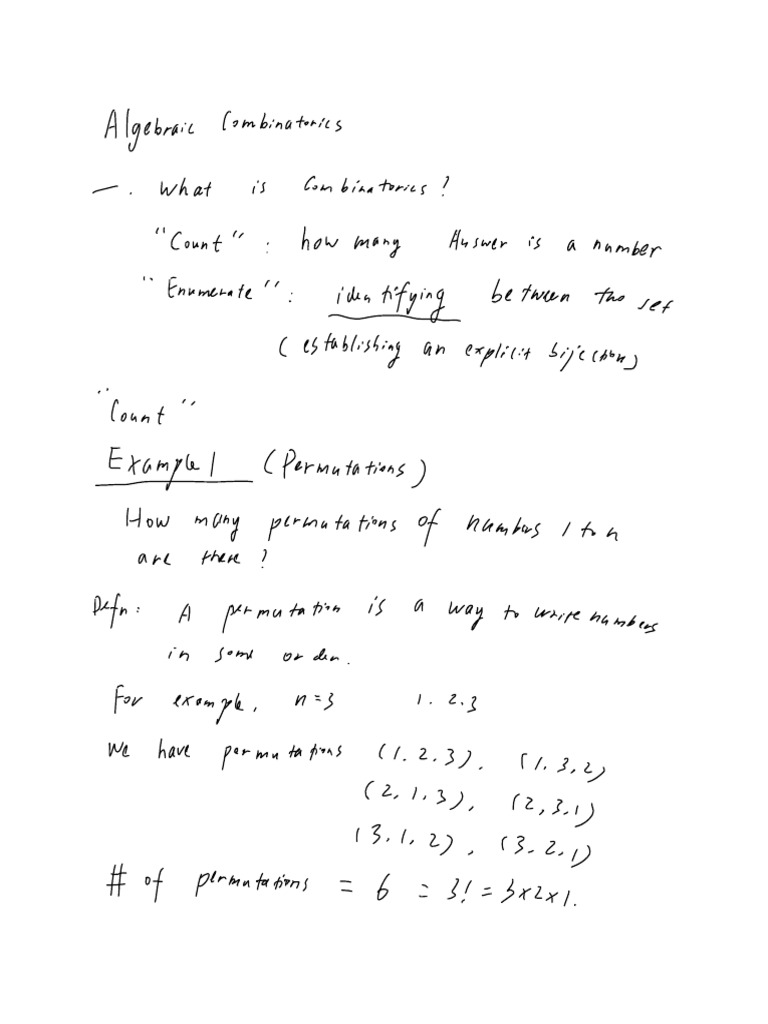 Algebraic Combinatorics
一. What is Combinatorics?
"Count": how many Answer is a number
"Enumerate": identifying between two set
(establishing an explicit bijection)
"Count"
Example 1 (Permutations)
How many permutations of numbers 1 to n
are there?
Defn: A permutation is a way to write numbers
in some order.
For example, n=3 1. 2. 3
We have permutations (1. 2. 3), (1. 3, 2)
(2, 1. 3), (2, 3. 1)
(3. 1. 2), (3. 2. 1)
# of permutations = 6 = 3! = 3×2×1.